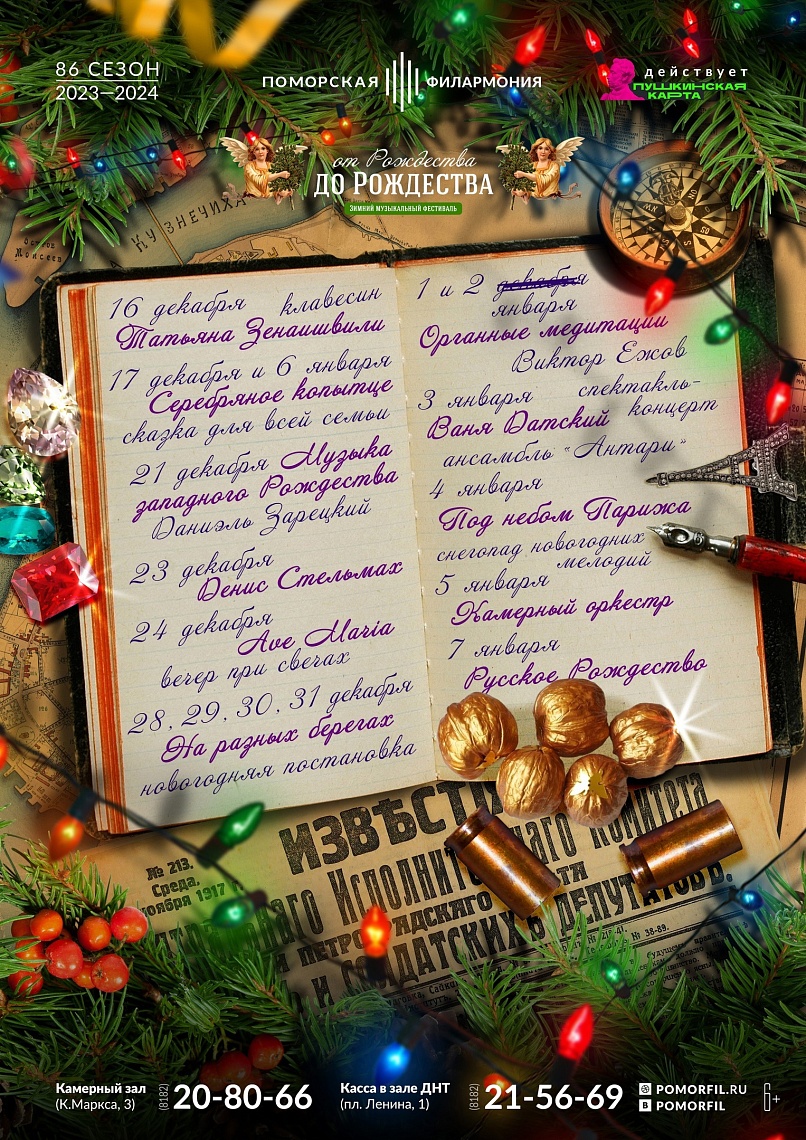 86 СЕЗОН
2023—2024
ПОМОРСКАЯ ФИЛАРМОНИЯ
действует
ПУШКИНСКАЯ
КАРТА
от Рождества
ДО РОЖДЕСТВА
ЗИМНИЙ МУЗЫКАЛЬНЫЙ ФЕСТИВАЛЬ
КУЗНЕЧИХА
Островъ
Моисеев
16 декабря клавесин
Татьяна Зенаишвили
17 декабря и 6 января
Серебряное копытце
сказка для всей семьи
21 декабря Музыка
западного Рождества
Даниэль Зарецкий
23 декабря
Денис Стельмах
24 декабря
Ave Maria
вечер при свечах
28, 29, 30, 31 декабря
На разных берегах
новогодняя постановка
1 и 2 декабря
января
Органные медитации
Виктор Ежов
3 января спектакль-
Ваня Датский концерт
ансамбль "Антари"
4 января
Под небом Парижа
снегопад новогодних
мелодий
5 января
Камерный оркестр
7 января
Русское Рождество
ИЗВѢСТІ
№ 213.
Среда,
ноября 1917 г.
Исполнит наго Комитета
и ПЕТРО АДСКАГО ТА
и СОЛДАТСКИХЪ ДЕПУТАТОВЪ.
№ 38-89.
Камерный зал
(К.Маркса, 3)
(8182) 20-80-66
Касса в зале ДНТ
(пл. Ленина, 1)
(8182) 21-56-69
POMORFIL.RU
POMORFIL
6+